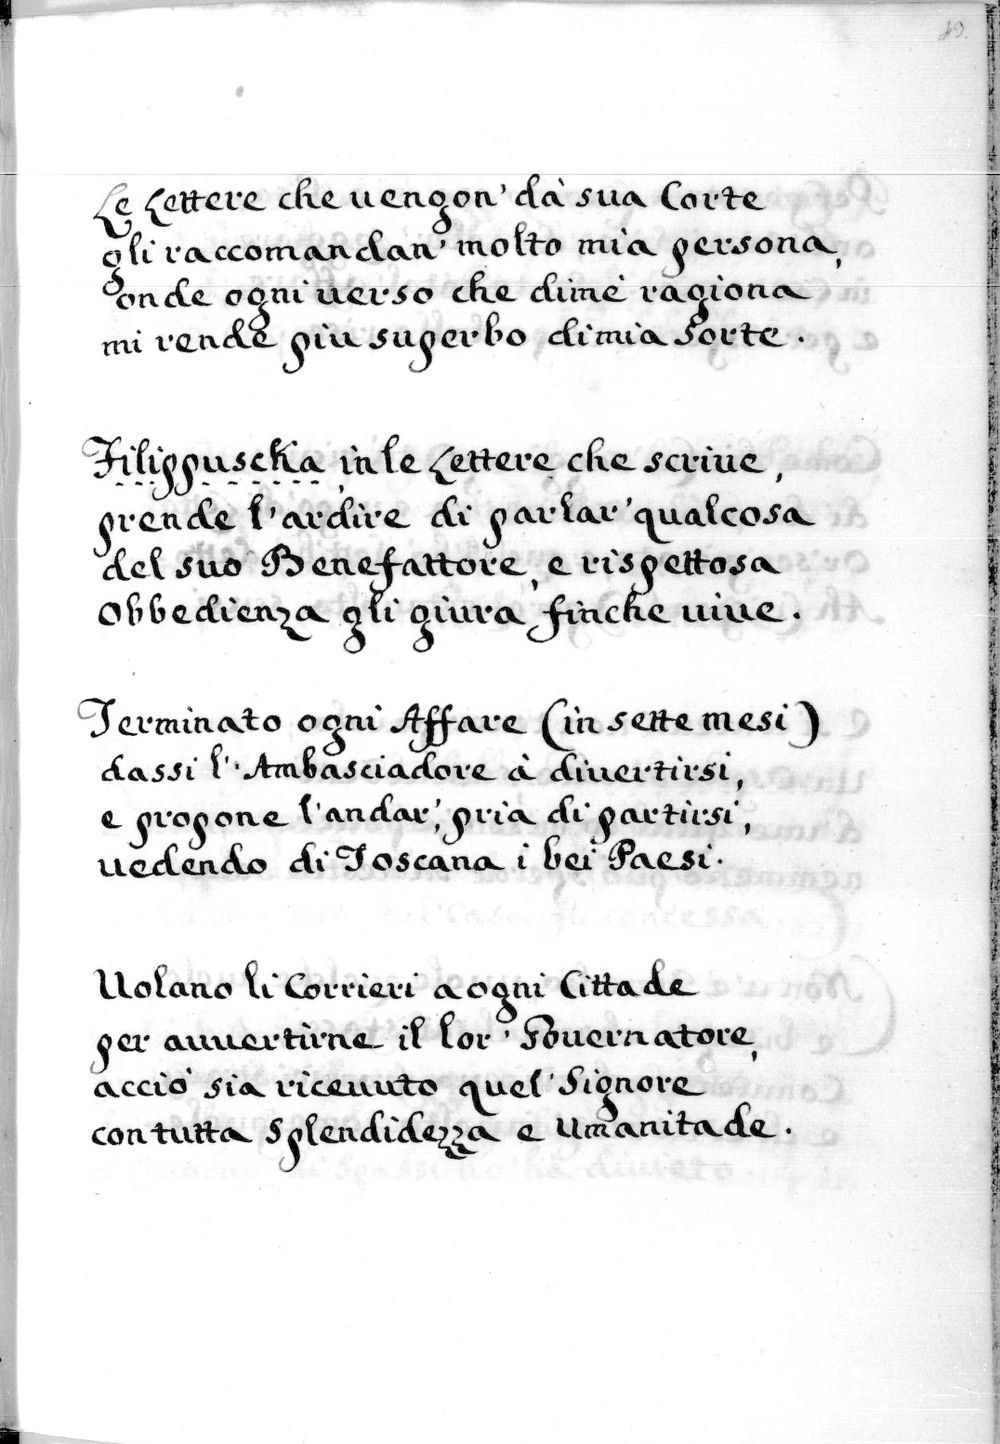 49.
Le Lettere che uengon' dà sua Corte
gli raccomandan' molto mia persona,
onde ogni uerso che dimé ragiona
mi rende piu superbo di mia Sorte.
Filippuscka in le Lettere che scriue,
prende l'ardire di parlar' qualcosa
del suo Benefattore, e rispettosa
Obbedienza gli giura finche uiue.
Terminato ogni Affare (in sette mesi)
dassi l'Ambasciadore à diuertirsi,
e propone l'andar', pria di partirsi,
uedendo di Toscana i bei Paesi.
Uolano li Corrieri a ogni Cittade
per auuertirne il lor' Gouernatore,
acciò sia riceuuto quel' Signore
con tutta Splendidezza e Umanitade.